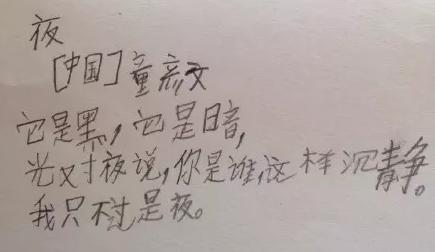 夜
[中国]童彦文
它是黑，它是暗，
光对夜说，你是谁，这样沉静。
我只不过是夜。